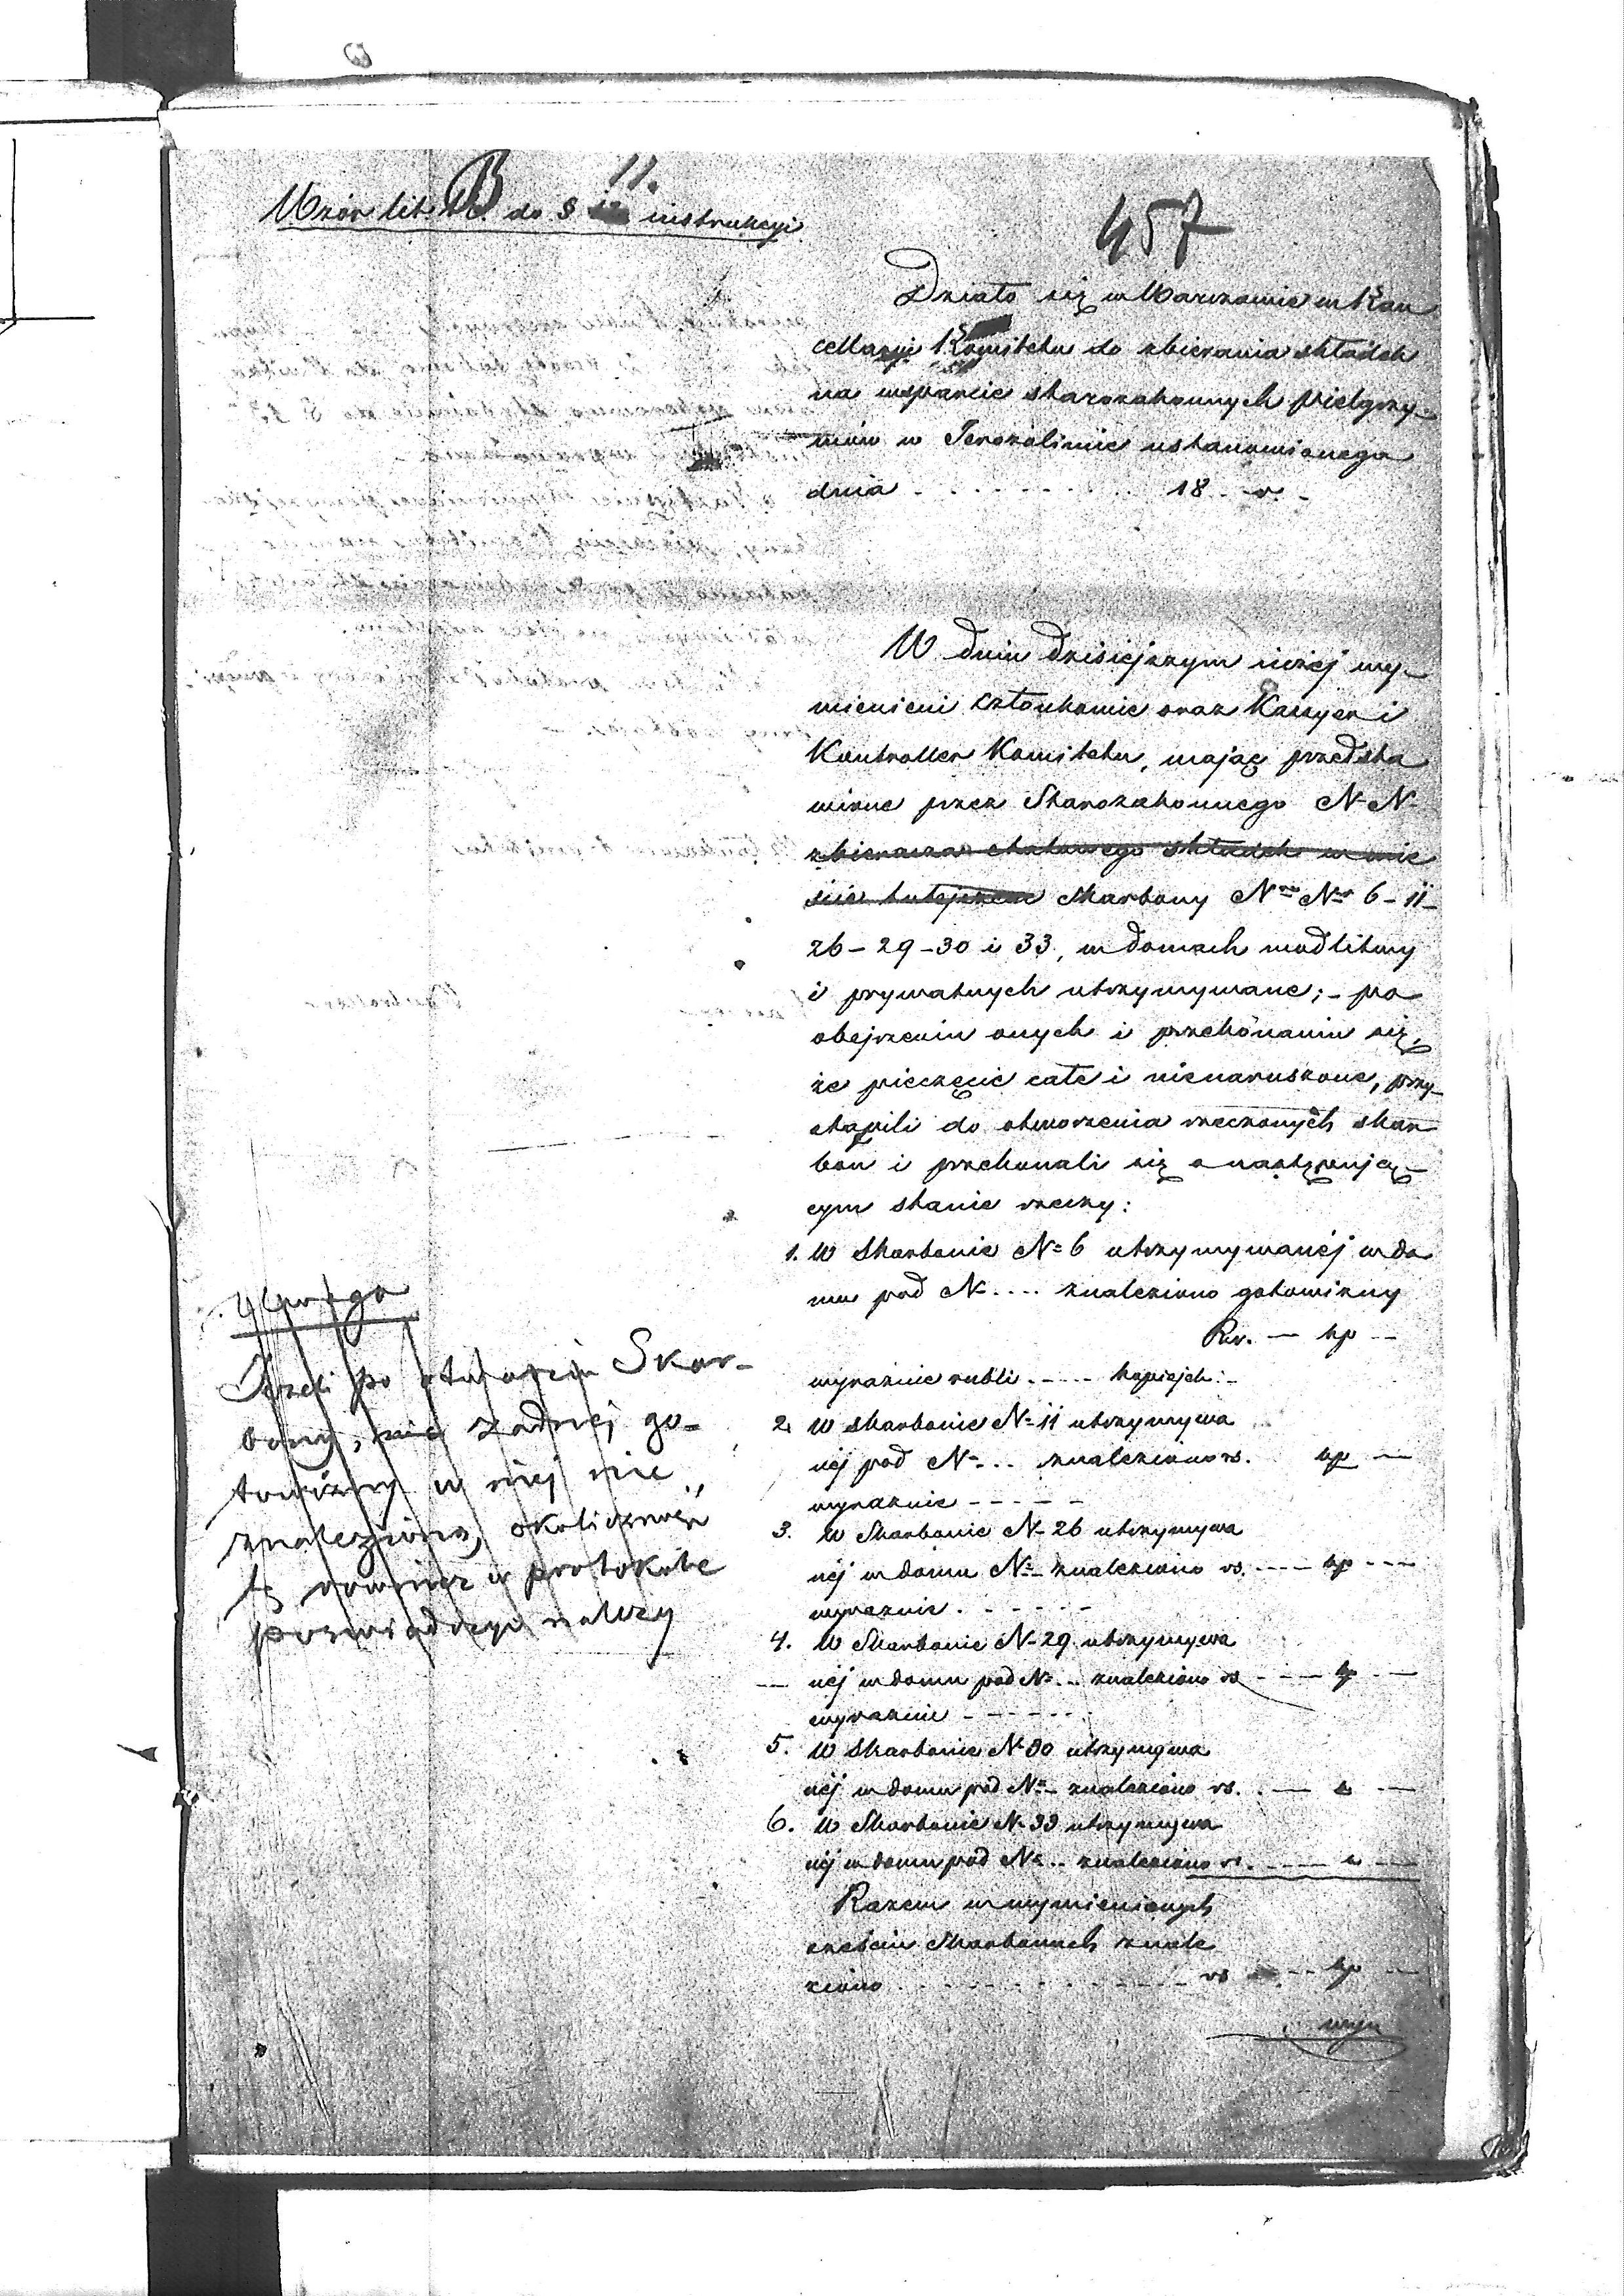 Wzór lit. B. do § 11. instrukcyi
457
Działo się w Warszawie w Kan
cellaryi Komitetu do zbierania składek
na wsparcie starozakonnych pielgrzy-
mów w Jerozolimie ustanowionego
dnia . . . . . . . . . 18 - r. -
W dniu dzisiejszym niżej wy-
mienieni członkowie oraz Kassyer i
Kontroller Komitetu, mając przedsta
wione przez Starozakonnego N. N.
zbieracza składek w mie
ście tutejszem Skarbony Nro Nro 6 - 11 -
26 - 29 - 30 i 33, w domach modlitwy
i prywatnych utrzymywane; - po
obejrzeniu onych i przekonaniu się,
że pieczęcie całe i nienaruszone, przy-
stąpili do otworzenia rzeczonych skar
bon i przekonali się o następują-
cym stanie rzeczy:
1. W Skarbonie No 6 utrzymywanéj w do
mu pod N .... znaleziono gotowizny
Rsr. — kp —
wyraźnie rubli . - - - kopiejek : -
2. W skarbonie No 11 utrzymywa
néj pod No ... znaleziono rs. kp —
wyraźnie - - - - -
3. W Skarbonie No 26 utrzymywa
néj w domu No - znaleziono rs. - - - - kp - - -
wyraźnie . - - - - -
4. W Skarbonie No 29 utrzymywa
néj w domu pod No ... znaleziono rs - - - - kp - -
wyraźnie - - - - - -
5. W Skarbonie No 30 utrzymywa
néj w domu pod No - znaleziono rs. . — „ —
6. W Skarbonie No 33 utrzymywa
néj w domu pod No .. znaleziono rs. - - - - „ - -
Razem w wymienionych
sześciu Skarbonach znale
ziono . . - - - - - - - - - rs - - kp —
wyra
Uwaga
Jeżeli po otwarciu Skar-
bony, nie żadnej go-
towizny w niej nie
znaleziono, okoliczność
tę również w protokóle
poświadczyć należy